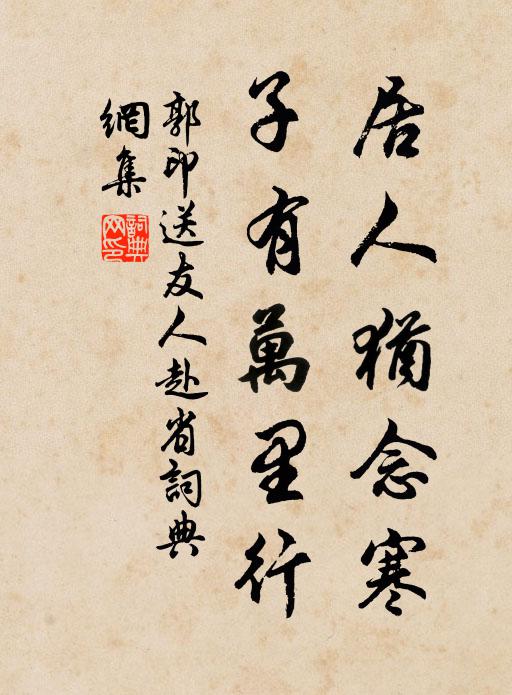 居人猶念寒
子有萬里行
郭印送友人赴省詞典
網集
詞典
网印